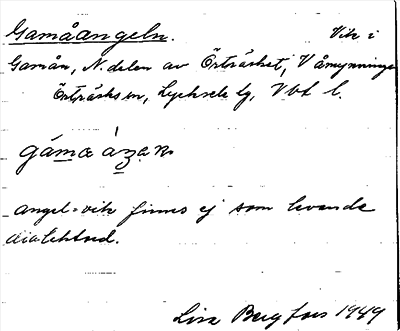 Gamåangeln. Vik i
Gamån, N. delen av Örträsket, V åmynningen
Örträsks sn, Lycksele lg, Vbt l.
gáma áŋəɴ
angel = vik finnes ej som levande
dialektord.
Lisa Bergfors 1949